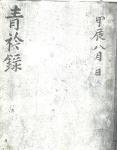 甲辰八月 日
青衿錄